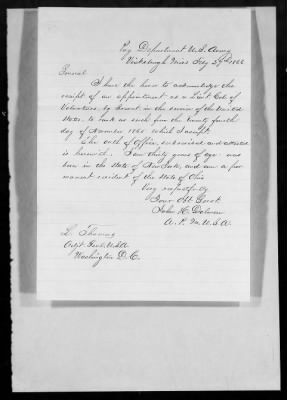 Pay Department U.S. Army
Vicksburgh Miss Feby 1866
General
I have the honor to acknowledge the
receipt of an appointment, as a Lieut. Col. of
Volunteers, by Brevet in the service of the United
States, to rank as such from the twenty fourth
day of November 1865 which I accept.
The oath of Office, subscribed and attested
is herewith. I am thirty years of age was
born in the State of New York, and am a per
manent resident of the State of Ohio
Very respectfully
Your Obt Servt
John H.
A. P. M. U.S.A.
L. Thomas
Adjt. Genl. U.S.A
Washington D.C.